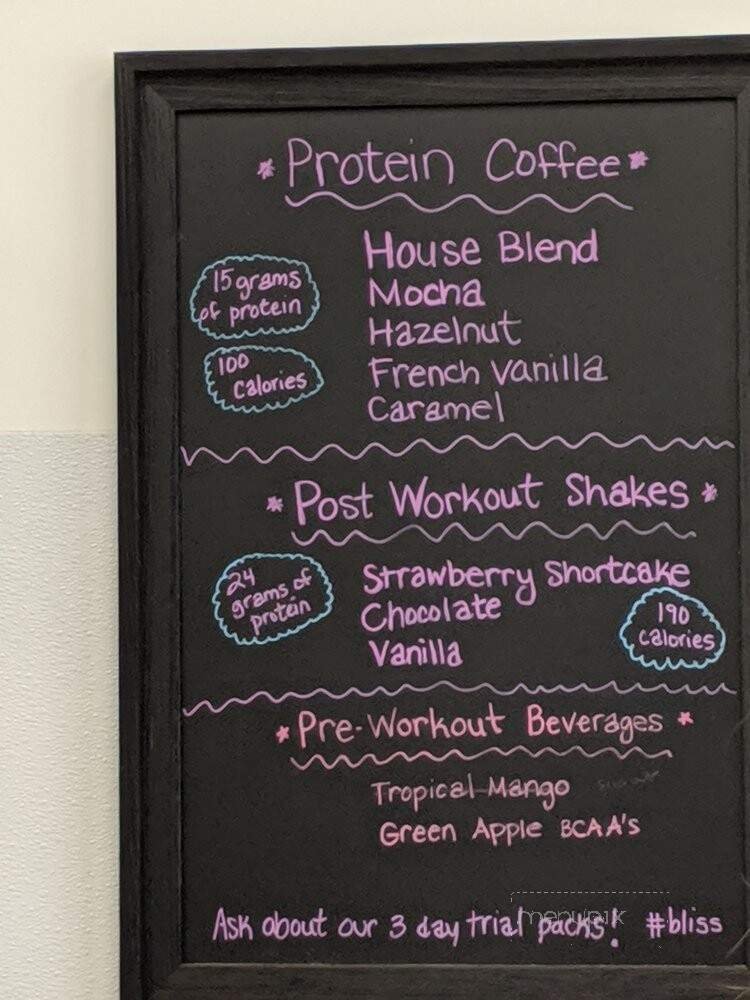 * Protein Coffee *
15 grams
of protein
100
Calories
House Blend
Mocha
Hazelnut
French Vanilla
Caramel
* Post Workout Shakes *
24
grams of
protein
Strawberry Shortcake
Chocolate
Vanilla
190
calories
* Pre-Workout Beverages *
Tropical Mango
Green Apple BCAA's
Ask about our 3 day trial packs! #bliss
menupix